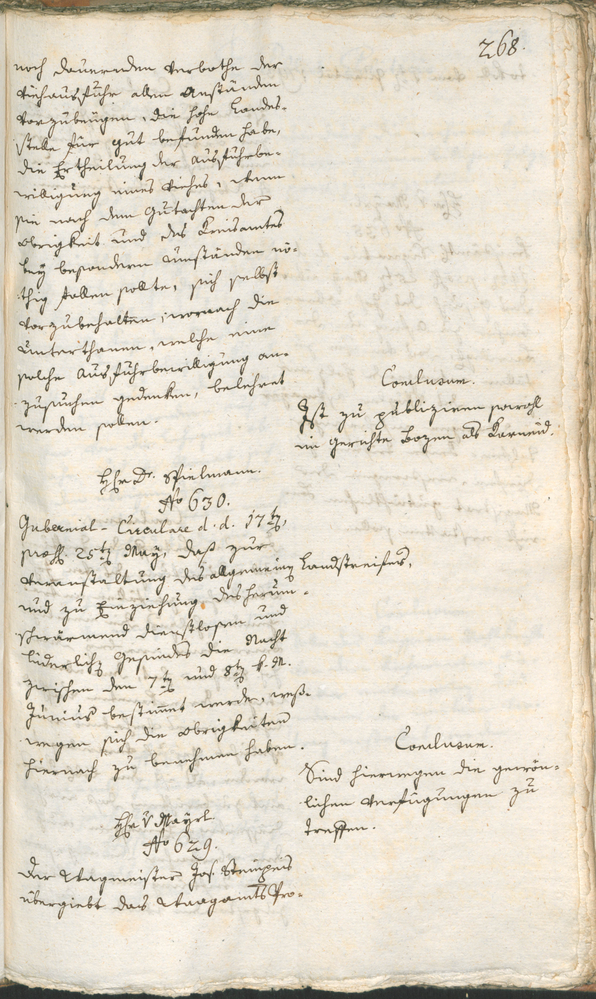 268.
noch dauernden Verbothe der
Viehausfuhr allen Anständen
vorzubeugen, die hohe Landes-
stelle für gut befunden habe,
die Ertheilung der Ausfuhrbe-
willigung eines Viehes, wenn
sie nach dem Gutachten der
Obrigkeit und des Kreisamtes
bey besondern Umständen nö-
thig fallen sollte, sich selbst
vorzubehalten; wornach die
Unterthanen, welche eine
solche Ausfuhrbewilligung an-
zusuchen gedenken, belehret
werden sollen.
Conclusum.
Ist zu publiziren sowohl
im Gerichte Bozen als Karneid.
Hr Dr. Spielmann.
No 630.
Gubernial-Circulare d. d. 17tn,
praes. 25tn May, daß zur
Veranstaltung des allgemeinen Landstreifes,
und zu Einziehung des herum-
schwärmend dienstlosen und
liederlichn Gesindes die Nacht
zwischen den 7tn und 8tn k. M.
Junius bestimmt werde, weß-
wegen sich die Obrigkeiten
hiernach zu benehmen haben.
Conclusum.
Sind hierwegen die gewöhn-
lichen Verfügungen zu
treffen.
Hr v Mayrl
No 629.
Der Wagmeister Jos.
übergiebt das Waagamts Pro-